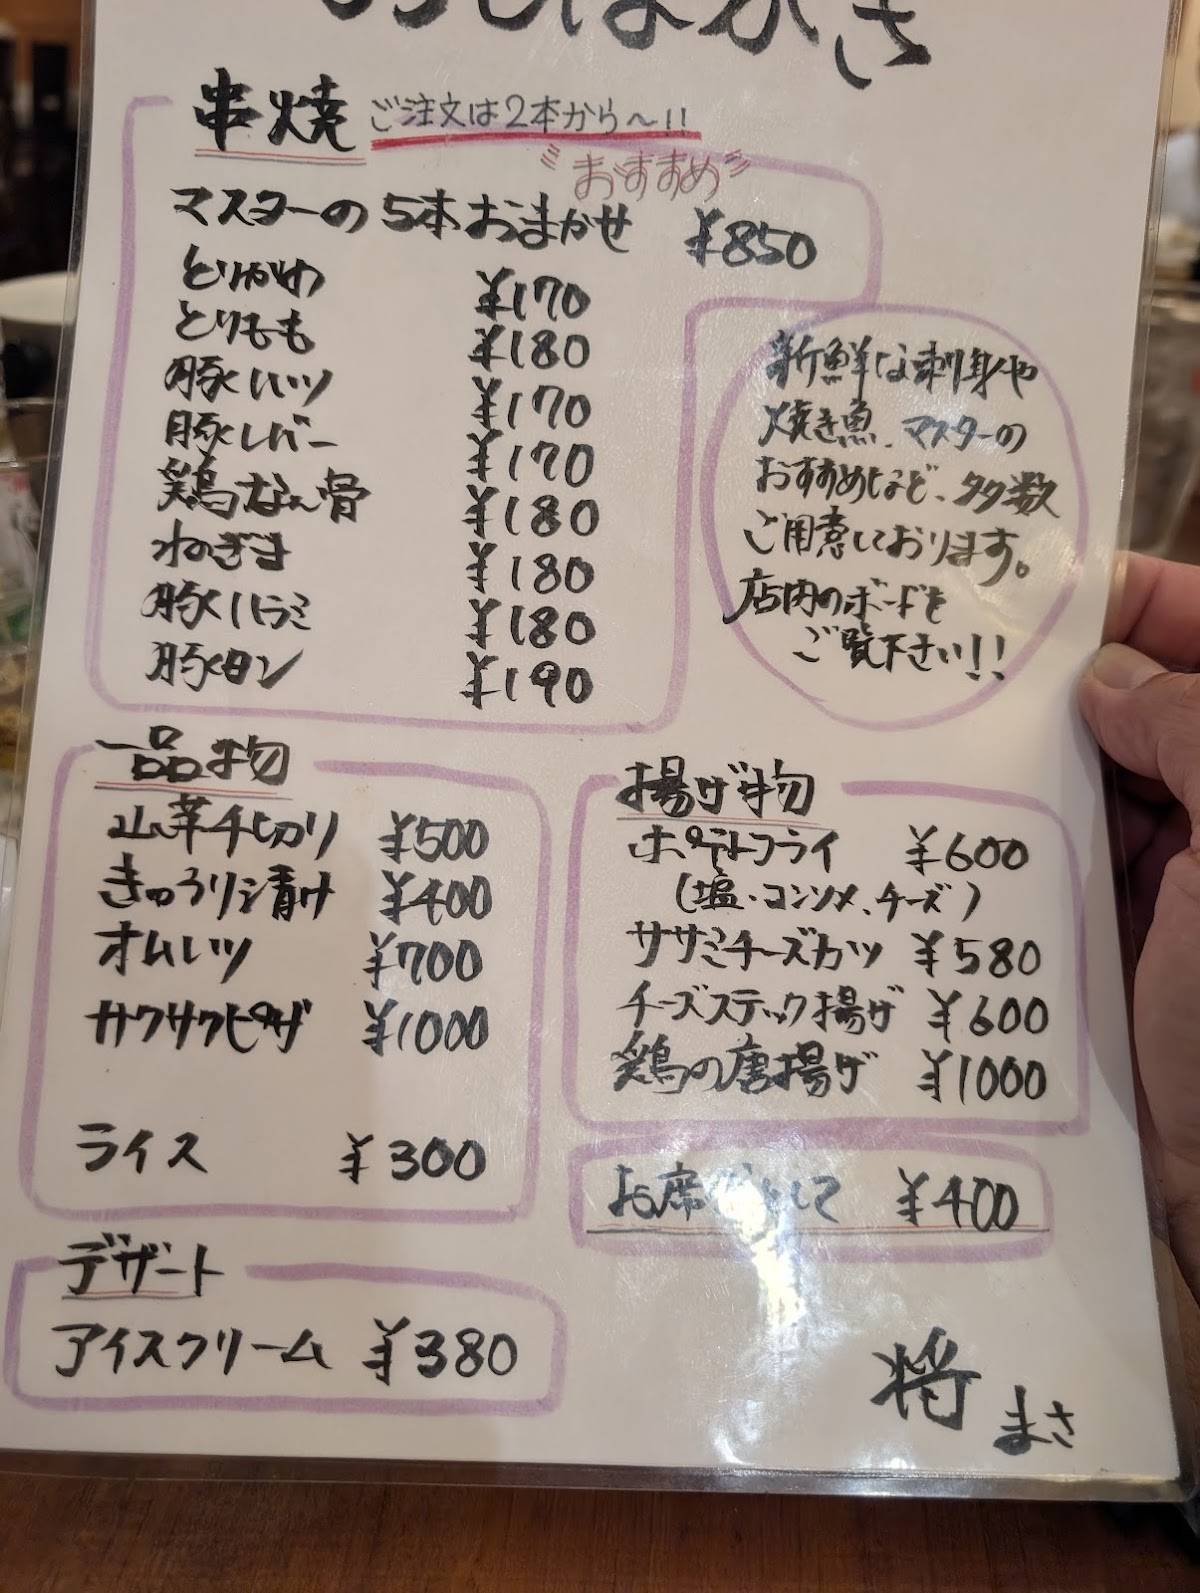 おしながき
串焼 ご注文は2本から〜!!
おすすめ
マスターの5本おまかせ ¥850
とりかわ ¥170
とりもも ¥180
豚ハツ ¥170
豚レバー ¥170
鶏なん骨 ¥180
ねぎま ¥180
豚ハラミ ¥180
豚タン ¥190
新鮮な刺身や
焼き魚、マスターの
おすすめなど、多数
ご用意しております。
店内のボードを
ご覧下さい!!
一品物
山芋千切り ¥500
きゅうり漬け ¥400
オムレツ ¥700
サクサクピザ ¥1000
ライス ¥300
揚げ物
ポテトフライ ¥600
(塩・コンソメ、チーズ)
ササミチーズカツ ¥580
チーズスティック揚げ ¥600
鶏の唐揚げ ¥1000
お席代として ¥400
デザート
アイスクリーム ¥380
将 まさ